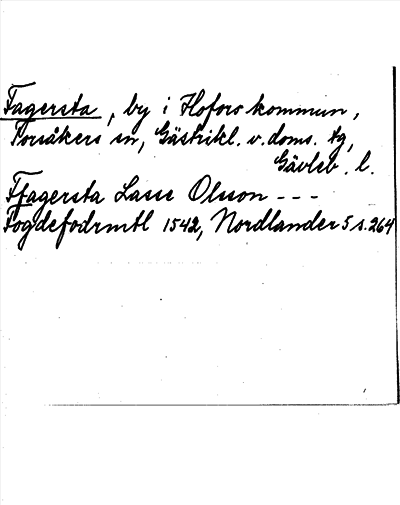 Fagersta, by i Hofors kommun,
Torsåkers sn, Gästrikl. v. doms. tg,
Gävleb. l.
Ffagersta Lasse Olsson - - -
Fogdefodrmtl 1542, Nordlander 5 s. 264